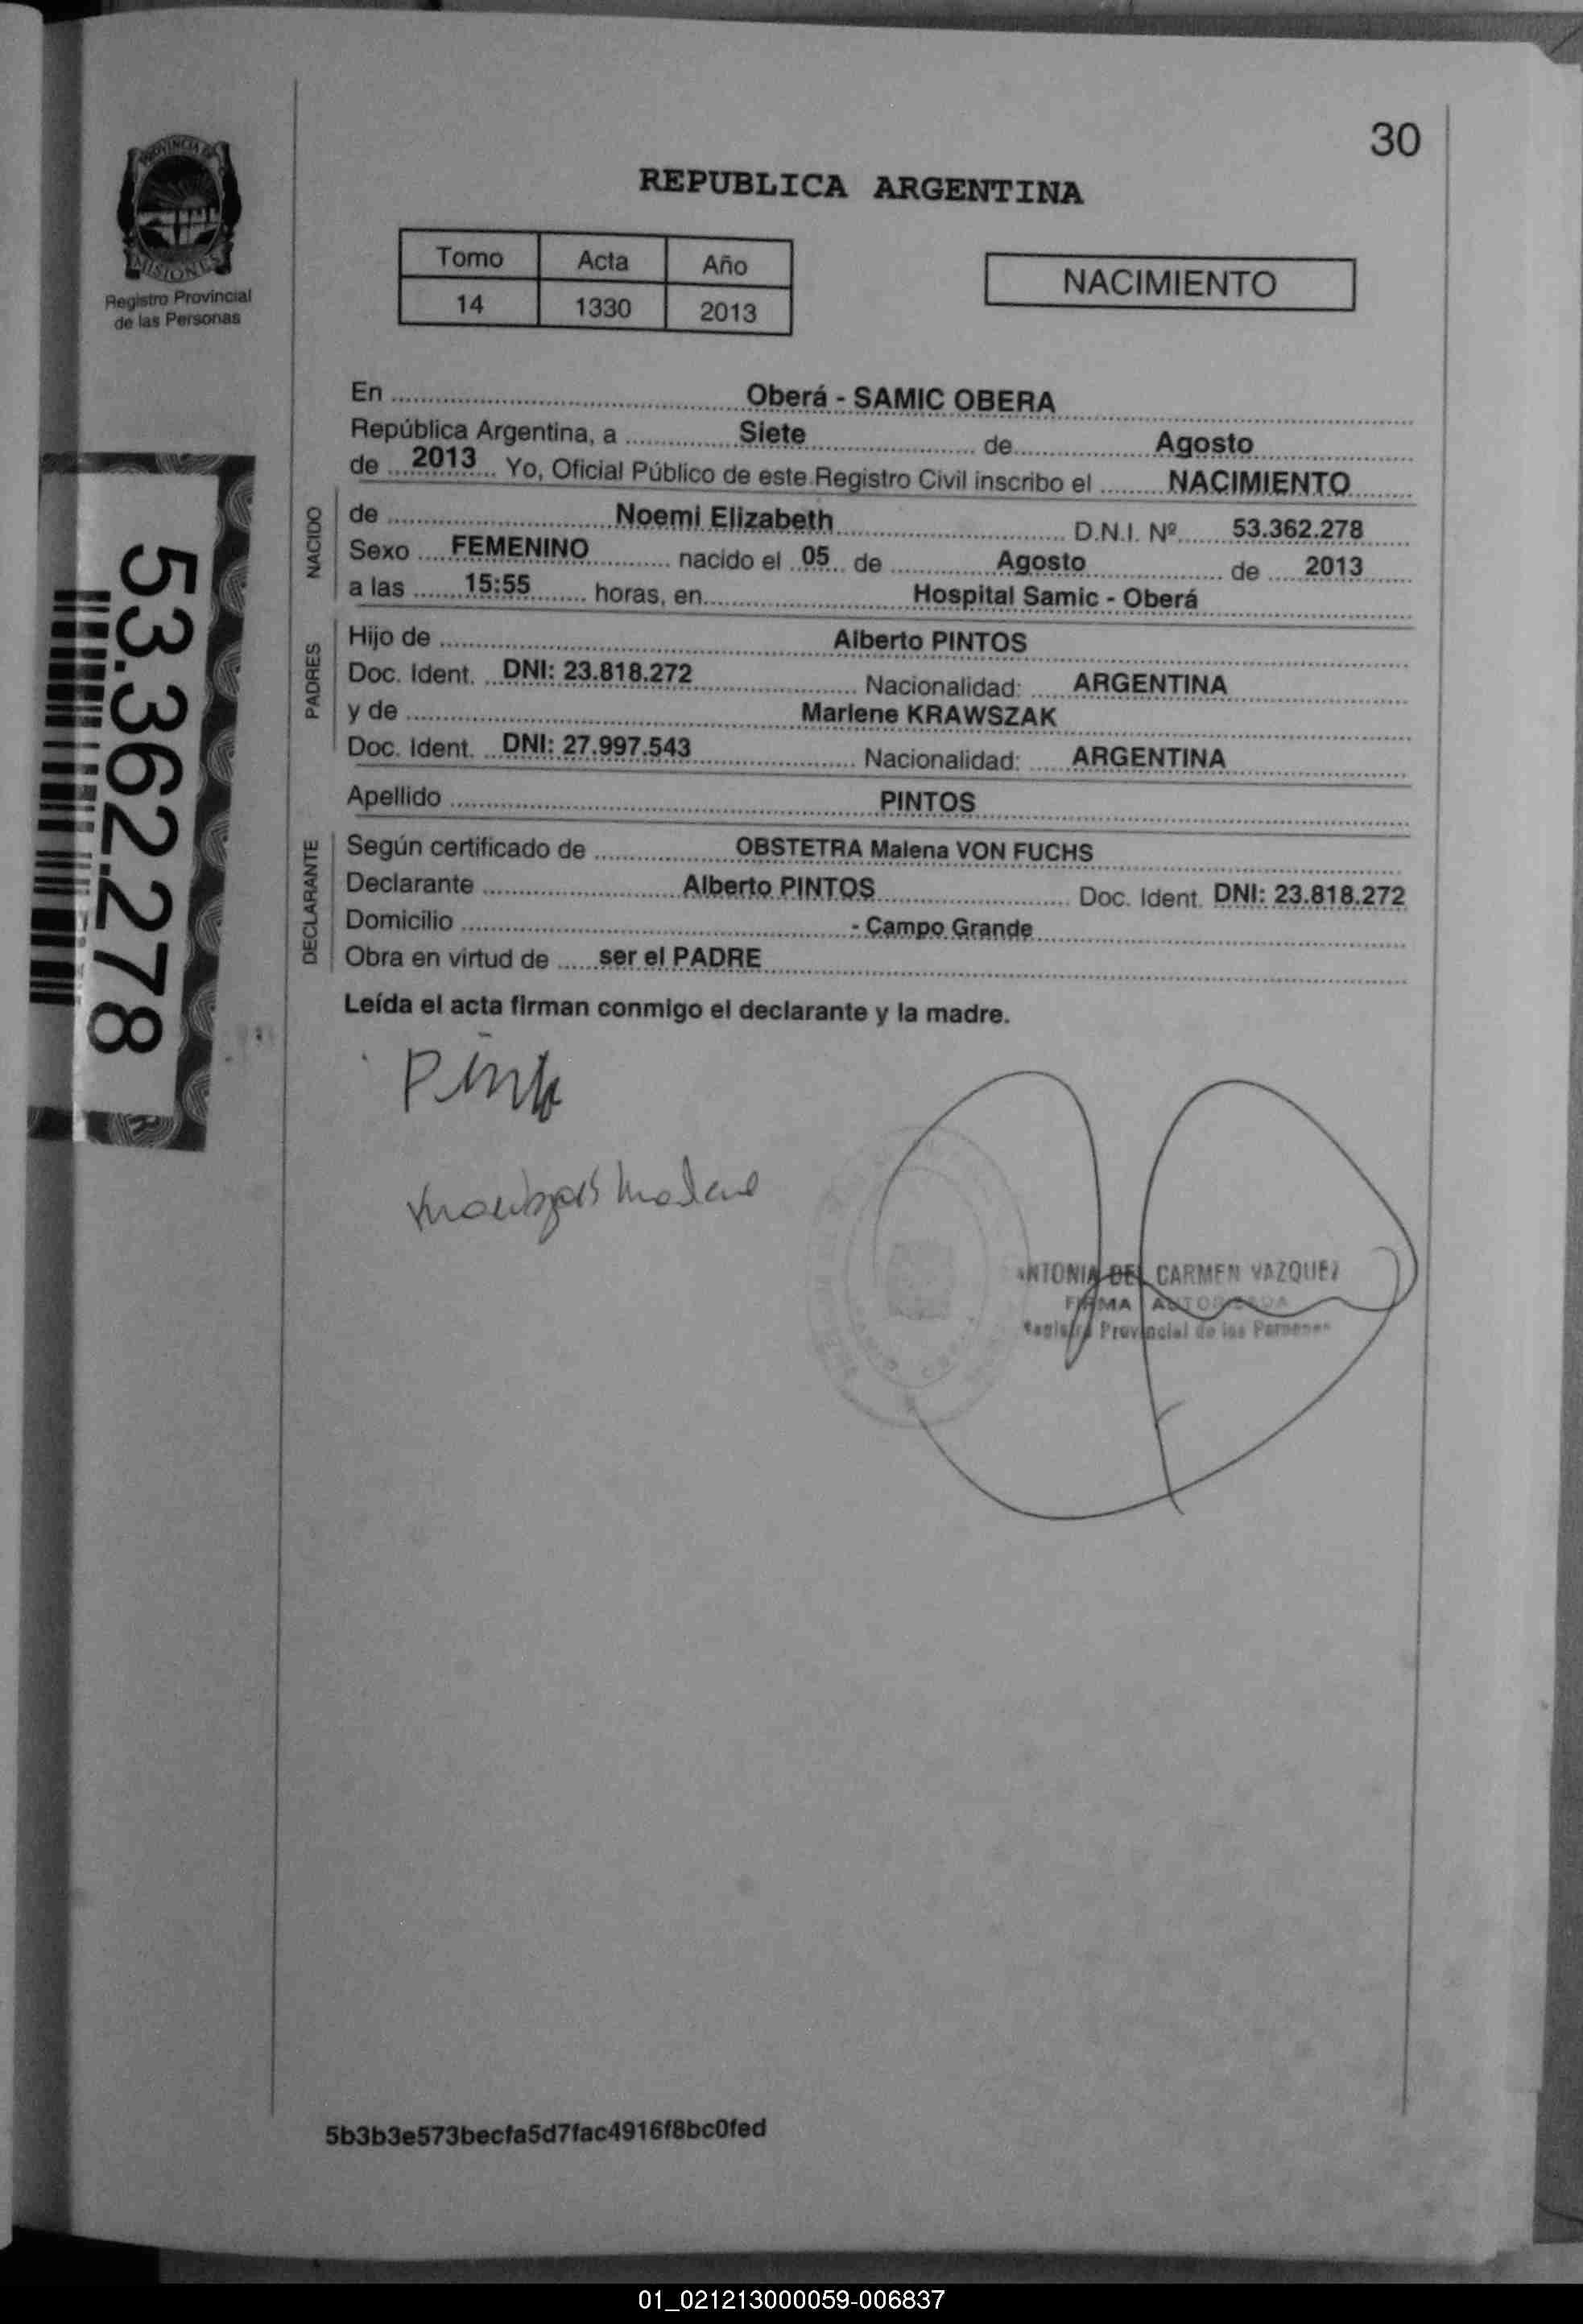 30
PROVINCIA DE
MISIONES
Registro Provincial
de las Personas
REPUBLICA ARGENTINA
Tomo Acta Año
14 1330 2013
NACIMIENTO
En Oberá - SAMIC OBERA
República Argentina, a Siete de Agosto
de 2013 Yo, Oficial Público de este Registro Civil inscribo el NACIMIENTO
NACIDO
de Noemi Elizabeth D.N.I. Nº 53.362.278
Sexo FEMENINO nacido el 05 de Agosto de 2013
a las 15:55 horas, en Hospital Samic - Oberá
PADRES
Hijo de Alberto PINTOS
Doc. Ident. DNI: 23.818.272 Nacionalidad: ARGENTINA
y de Marlene KRAWSZAK
Doc. Ident. DNI: 27.997.543 Nacionalidad: ARGENTINA
Apellido PINTOS
DECLARANTE
Según certificado de OBSTETRA Malena VON FUCHS
Declarante Alberto PINTOS Doc. Ident. DNI: 23.818.272
Domicilio - Campo Grande
Obra en virtud de ser el PADRE
Leída el acta firman conmigo el declarante y la madre.
53.362.278
NTONIA DEL CARMEN VAZQUEZ
FIRMA AUTORIZADA
Registro Provincial de las Personas
5b3b3e573becfa5d7fac4916f8bc0fed
01_021213000059-006837